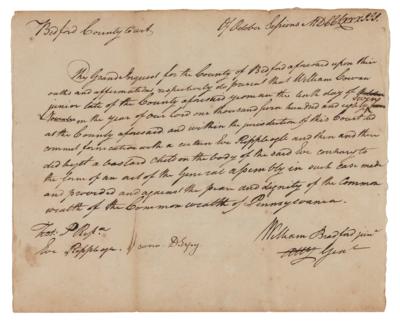 Bedford County Court Of October Sessions
The Grand Inquest for the County of Bedford aforesaid upon their
oaths and affirmations respectively do present that William Cowan
junior late of the County aforesaid yeoman the tenth day of
in the year of our Lord one thousand seven hundred and eighty
at the County aforesaid and within the jurisdiction of this Court did
commit fornication with a certain Eve Repplogle and then and there
did beget a bastard child on the body of the said Eve contrary to
the form of an act of the General assembly in such case made
and provided and against the peace and dignity of the Common
wealth of the Commonwealth of Pennsylvania.
William Bradford junr
Atty Genl
Eve Repplogle